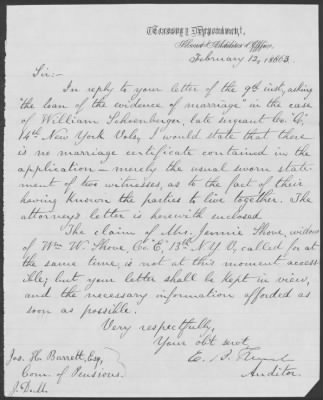 Treasury Department,
Second Auditor's Office,
February 12, 1863.
Sir:-
In reply to your letter of the 9th inst, asking
"the loan of the evidence of marriage" in the case
of William Schwenberger, late sergeant Co. "G,"
14th New York Vols, I would state that there
is no marriage certificate contained in the
application - merely the usual sworn state-
ment of two witnesses, as to the fact of their
having known the parties to live together. The
attorney's letter is herewith enclosed.
The claim of Mrs. Jennie Shove, widow
of Wm W. Shove Co. "E", 13th N.Y.V., called for at
the same time, is not at this moment access-
ible; but your letter shall be kept in view,
and the necessary information afforded as
soon as possible.
Very respectfully,
Your obt svt,
E. B.
Auditor.
Jos. H. Barrett, Esq,
Com. of Pensions.